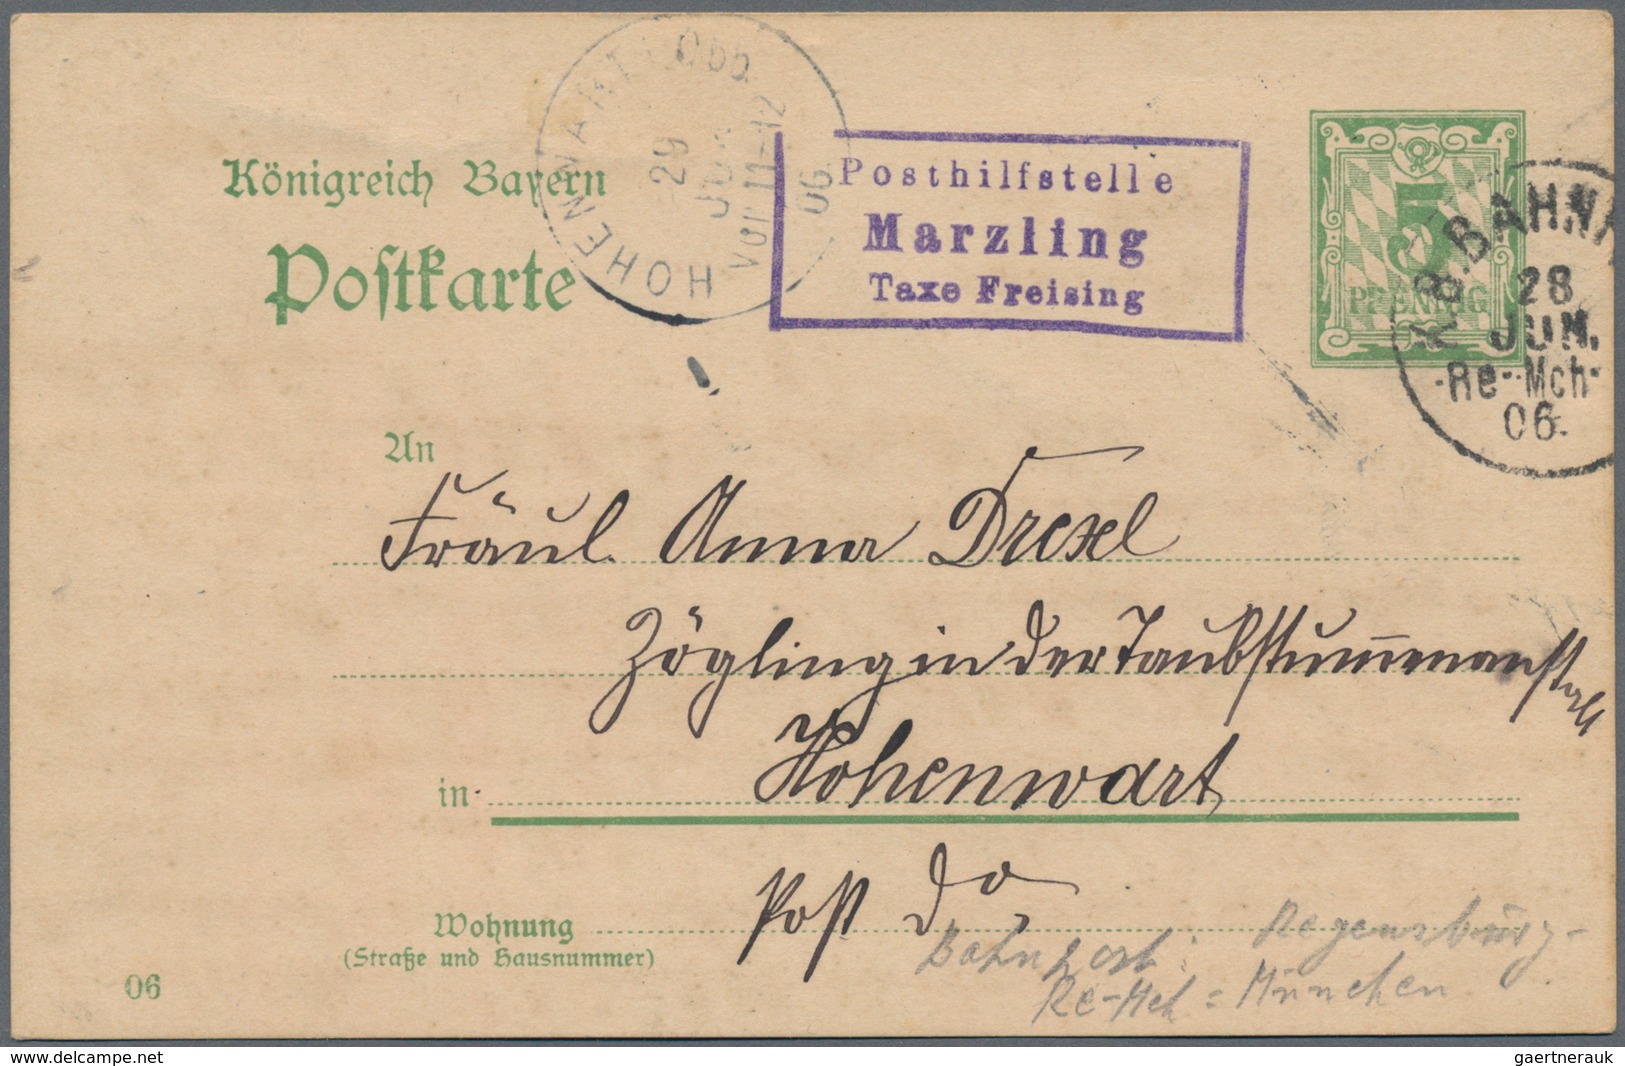 HOHENWART Obb.
29
JUN
Vor 11-12
06
Königreich Bayern
Postkarte
Posthilfstelle
Marzling
Taxe Freising
5
PFENNIG
K.B.BAHN
28
JUN.
-Re--Mch-
06.
An
Fräul. Anna Drexl
Zögling in der Taubstummenanstalt
in Hohenwart
Post do
Wohnung
(Straße und Hausnummer)
Bahnpost: Regensburg-
Re-Mch = München
06
gaertnerauk